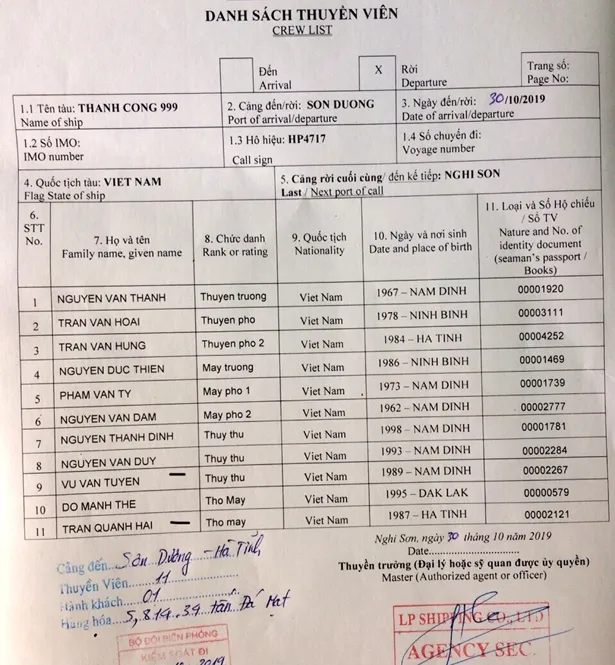 DANH SÁCH THUYỀN VIÊN
CREW LIST
Đến
Arrival
X
Rời
Departure
Trang số:
Page No:
1.1 Tên tàu: THANH CONG 999
Name of ship
2. Cảng đến/rời: SON DUONG
Port of arrival/departure
3. Ngày đến/rời: 30/10/2019
Date of arrival/departure
1.2 Số IMO:
IMO number
1.3 Hô hiệu: HP4717
Call sign
1.4 Số chuyến đi:
Voyage number
4. Quốc tịch tàu: VIET NAM
Flag State of ship
5. Cảng rời cuối cùng/ đến kế tiếp: NGHI SON
Last / Next port of call
6. STT No.
7. Họ và tên
Family name, given name
8. Chức danh
Rank or rating
9. Quốc tịch
Nationality
10. Ngày và nơi sinh
Date and place of birth
11. Loại và Số Hộ chiếu
/ Số TV
Nature and No. of
identity document
(seaman's passport /
Books)
1 NGUYEN VAN THANH Thuyen truong Viet Nam 1967 – NAM DINH 00001920
2 TRAN VAN HOAI Thuyen pho Viet Nam 1978 – NINH BINH 00003111
3 TRAN VAN HUNG Thuyen pho 2 Viet Nam 1984 – HA TINH 00004252
4 NGUYEN DUC THIEN May truong Viet Nam 1986 – NINH BINH 00001469
5 PHAM VAN TY May pho 1 Viet Nam 1973 – NAM DINH 00001739
6 NGUYEN VAN DAM May pho 2 Viet Nam 1962 – NAM DINH 00002777
7 NGUYEN THANH DINH Thuy thu Viet Nam 1998 – NAM DINH 00001781
8 NGUYEN VAN DUY Thuy thu Viet Nam 1993 – NAM DINH 00002284
9 VU VAN TUYEN Thuy thu Viet Nam 1989 – NAM DINH 00002267
10 DO MANH THE Tho May Viet Nam 1995 – DAK LAK 00000579
11 TRAN QUANH HAI Tho may Viet Nam 1987 – HA TINH 00002121
Nghi Sơn, ngày 30 tháng 10 năm 2019
Date
Thuyền trưởng (Đại lý hoặc sỹ quan được ủy quyền)
Master (Authorized agent or officer)
Cảng đến... Sơn Dương - Hà Tĩnh
Thuyền Viên... 11
Hành khách... 01
Hàng hóa... 5,819.39 tấn Đá Mạt
BỘ ĐỘI BIÊN PHÒNG
KIỂM SOÁT ĐI
2019
LP SHIPPING CO., LTD
AGENCY SEC.